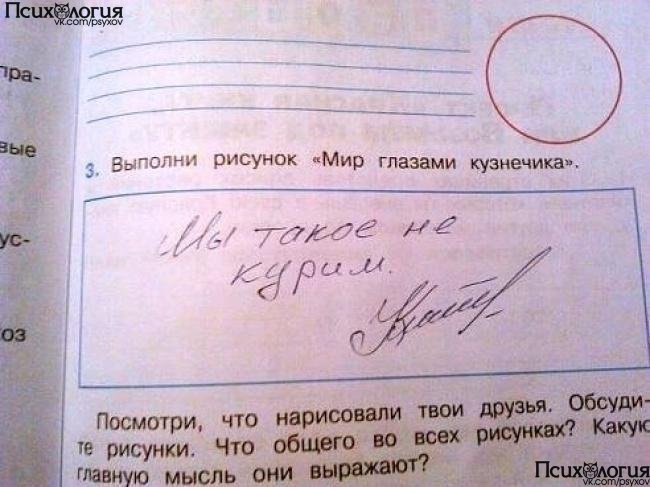 ПСИХОЛОГИЯ
vk.com/psyxov
пра-
вые
ус-
оз
3. Выполни рисунок «Мир глазами кузнечика».
Мы такое не
курим.
Посмотри, что нарисовали твои друзья. Обсуди-
те рисунки. Что общего во всех рисунках? Какую
главную мысль они выражают?
ПСИХОЛОГИЯ
vk.com/psyxov